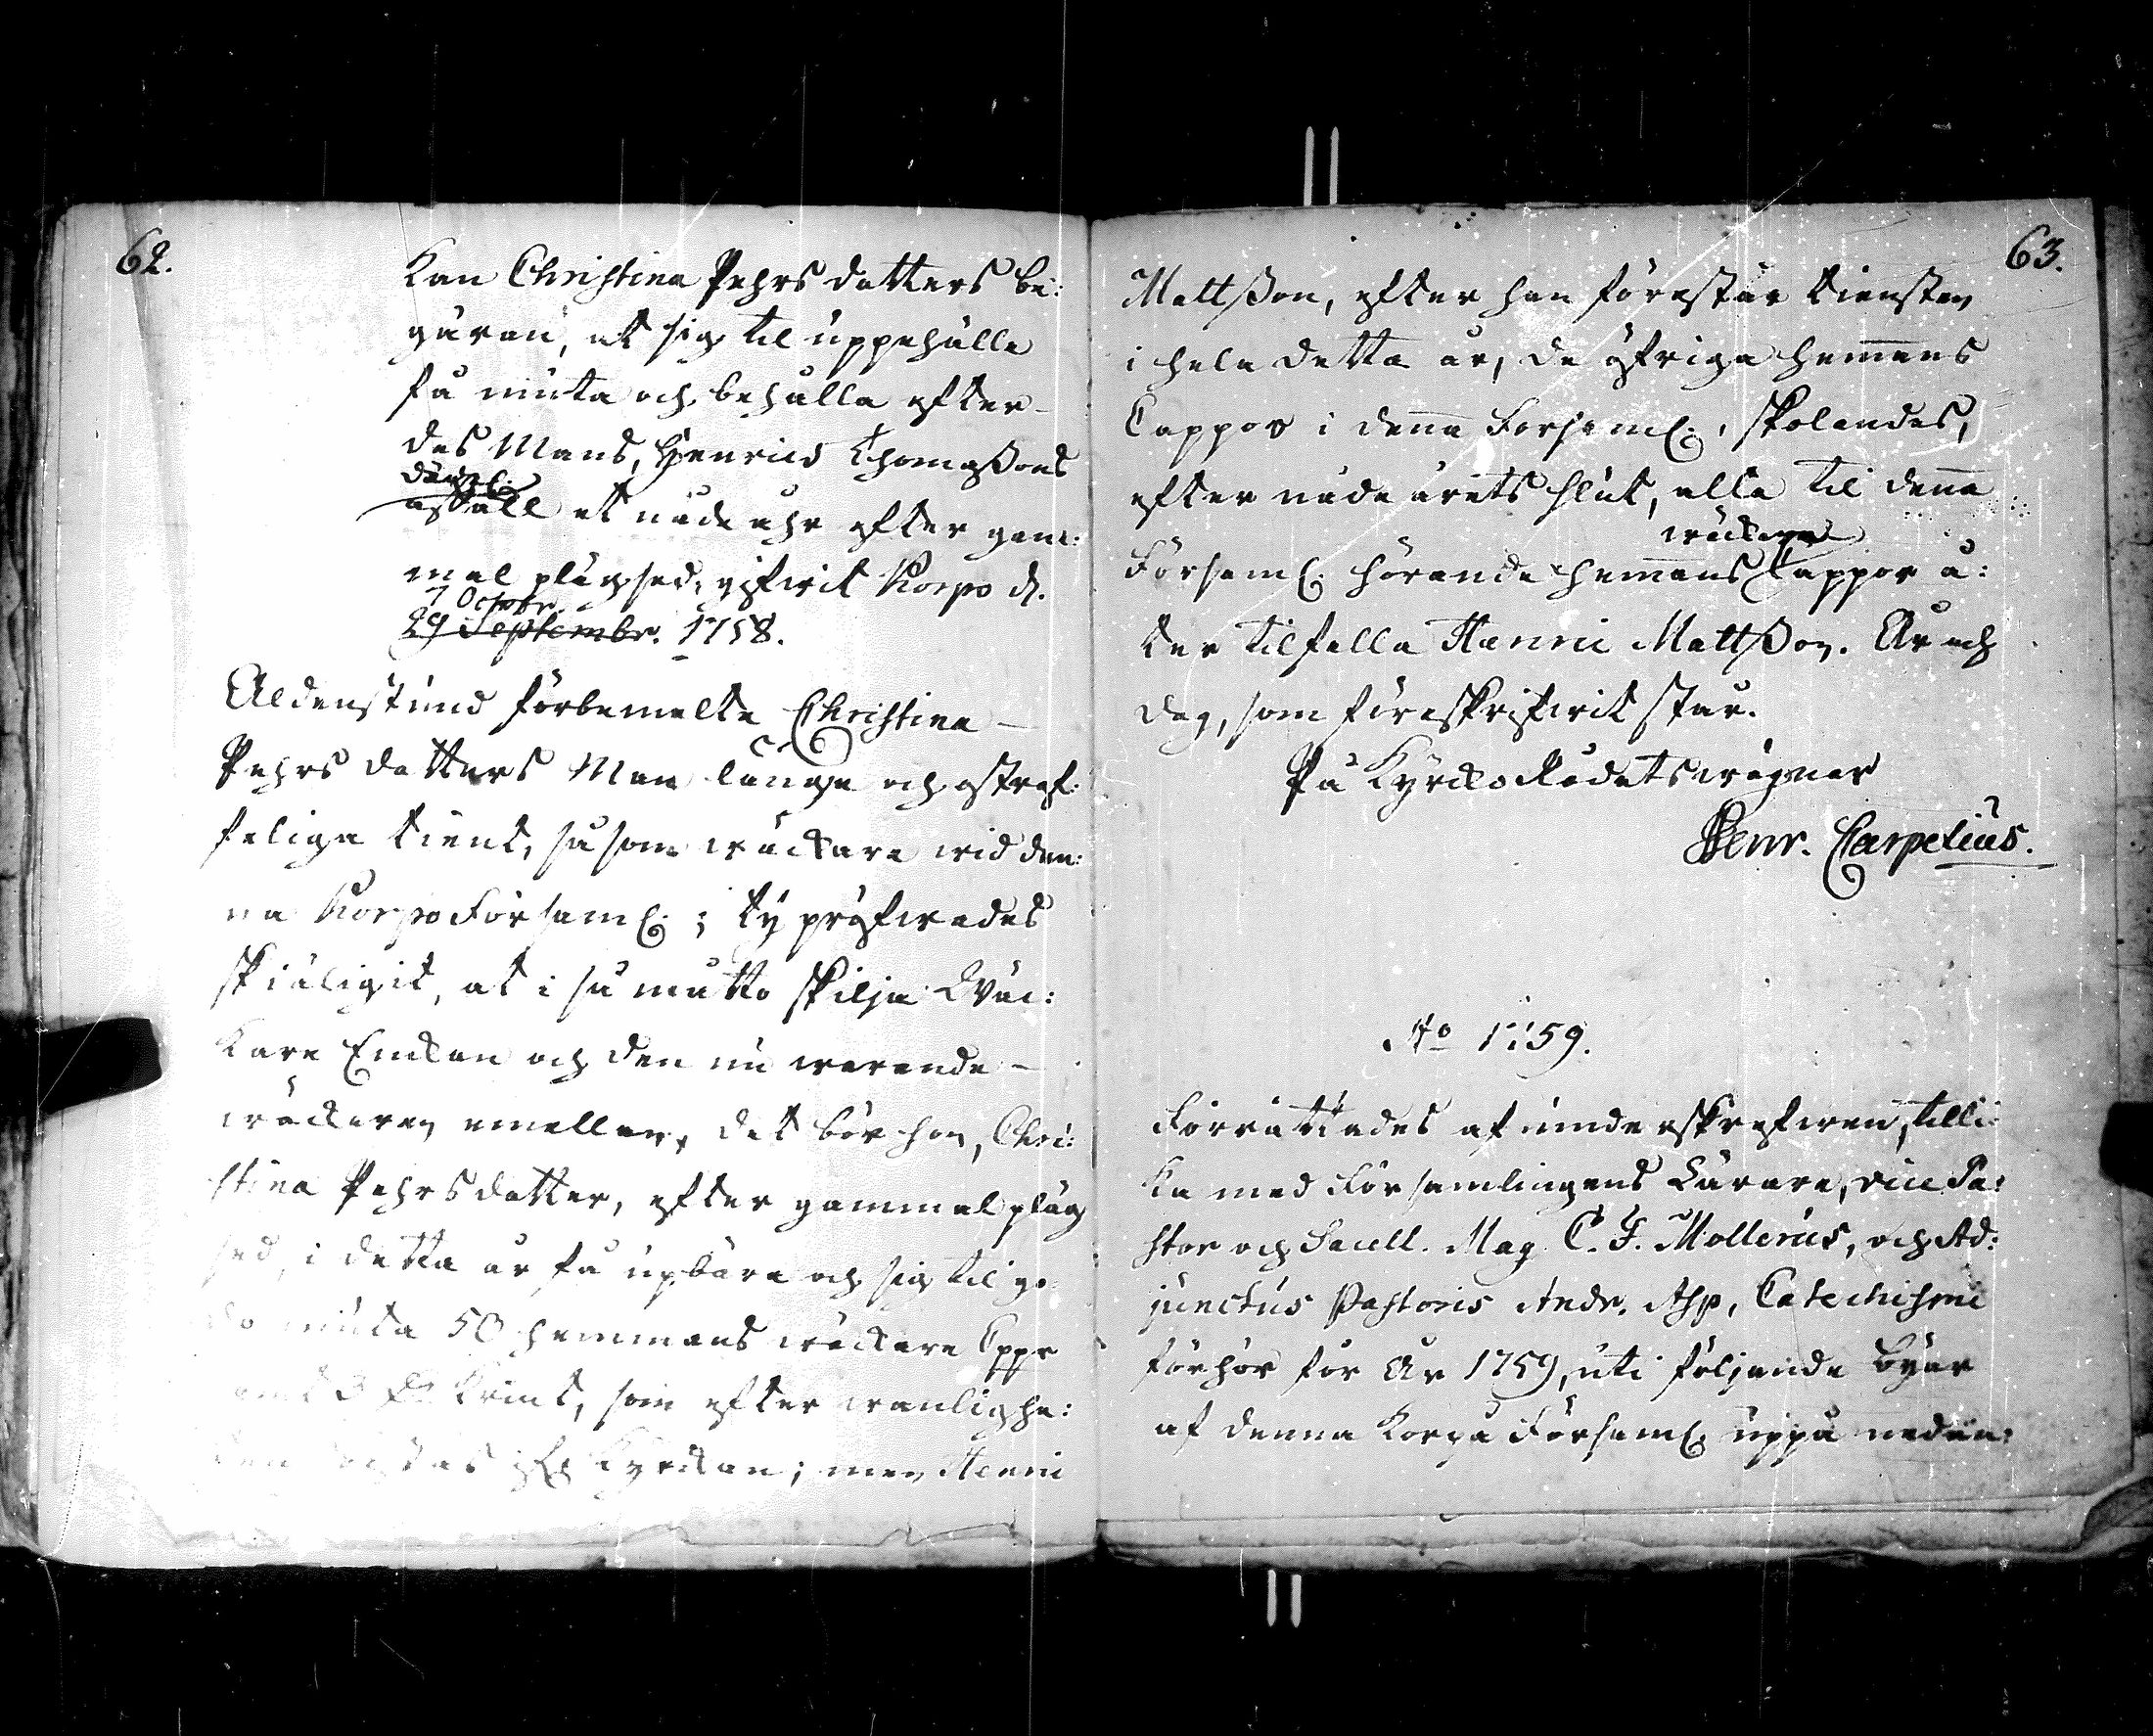 62.
kan Christina Pehrs datters be:
gäran, at sig til uppehälle
få niuta och behålla efter
des Mans, Henrics Thomaßons
dödel:
aftall et nåde åhr efter gam:
mal plägsed, gifwit Korpo d.
7 Octobr.
29 Septembr. 1758.
Aldenstund förbemelte Christina
Pehrs datters Man länge och ostraf:
feliga tient, såsom wäckare wid den:
na Korpo Församl.; ty pröfwades
skiäligit, at i så måtto skilja Wäc:
kare Enckan och den nu warande
wäckaren emellan, det bör hon, Chri:
stina Pehrsdatter, efter gammal pläg
sed, i detta år få upbära och sig til go
do niuta 50 hemmans wäckare Cppr
3 krint, som efter wanlighe:
Kyrckan; men Henric
63.
Mattßon, efter han förestår tiensten
i hela detta år, de öfriga hemans
Cappor i dena Församl., skolandes,
efter nåde årets slut, alla til dena
wäckare
Församl. hörande hemans Cappor å:
ter tilfalla Henric Mattßon. År och
dag, som föreskrifwit står.
På Kyrcko Rådets wägnar
Henr. Carpelius.
Ao 1759.
Förrättades af underskrefwen, tilli:
ka med Församlingens Lärare, vice Pa:
stor och Sacell. Mag. C. F. Mollerus, och Ad:
junctus Pastoris Andr. Asp, Catechismi
förhör för År 1759, uti följande Byar
af denna Korpo Församl. uppå nedan: